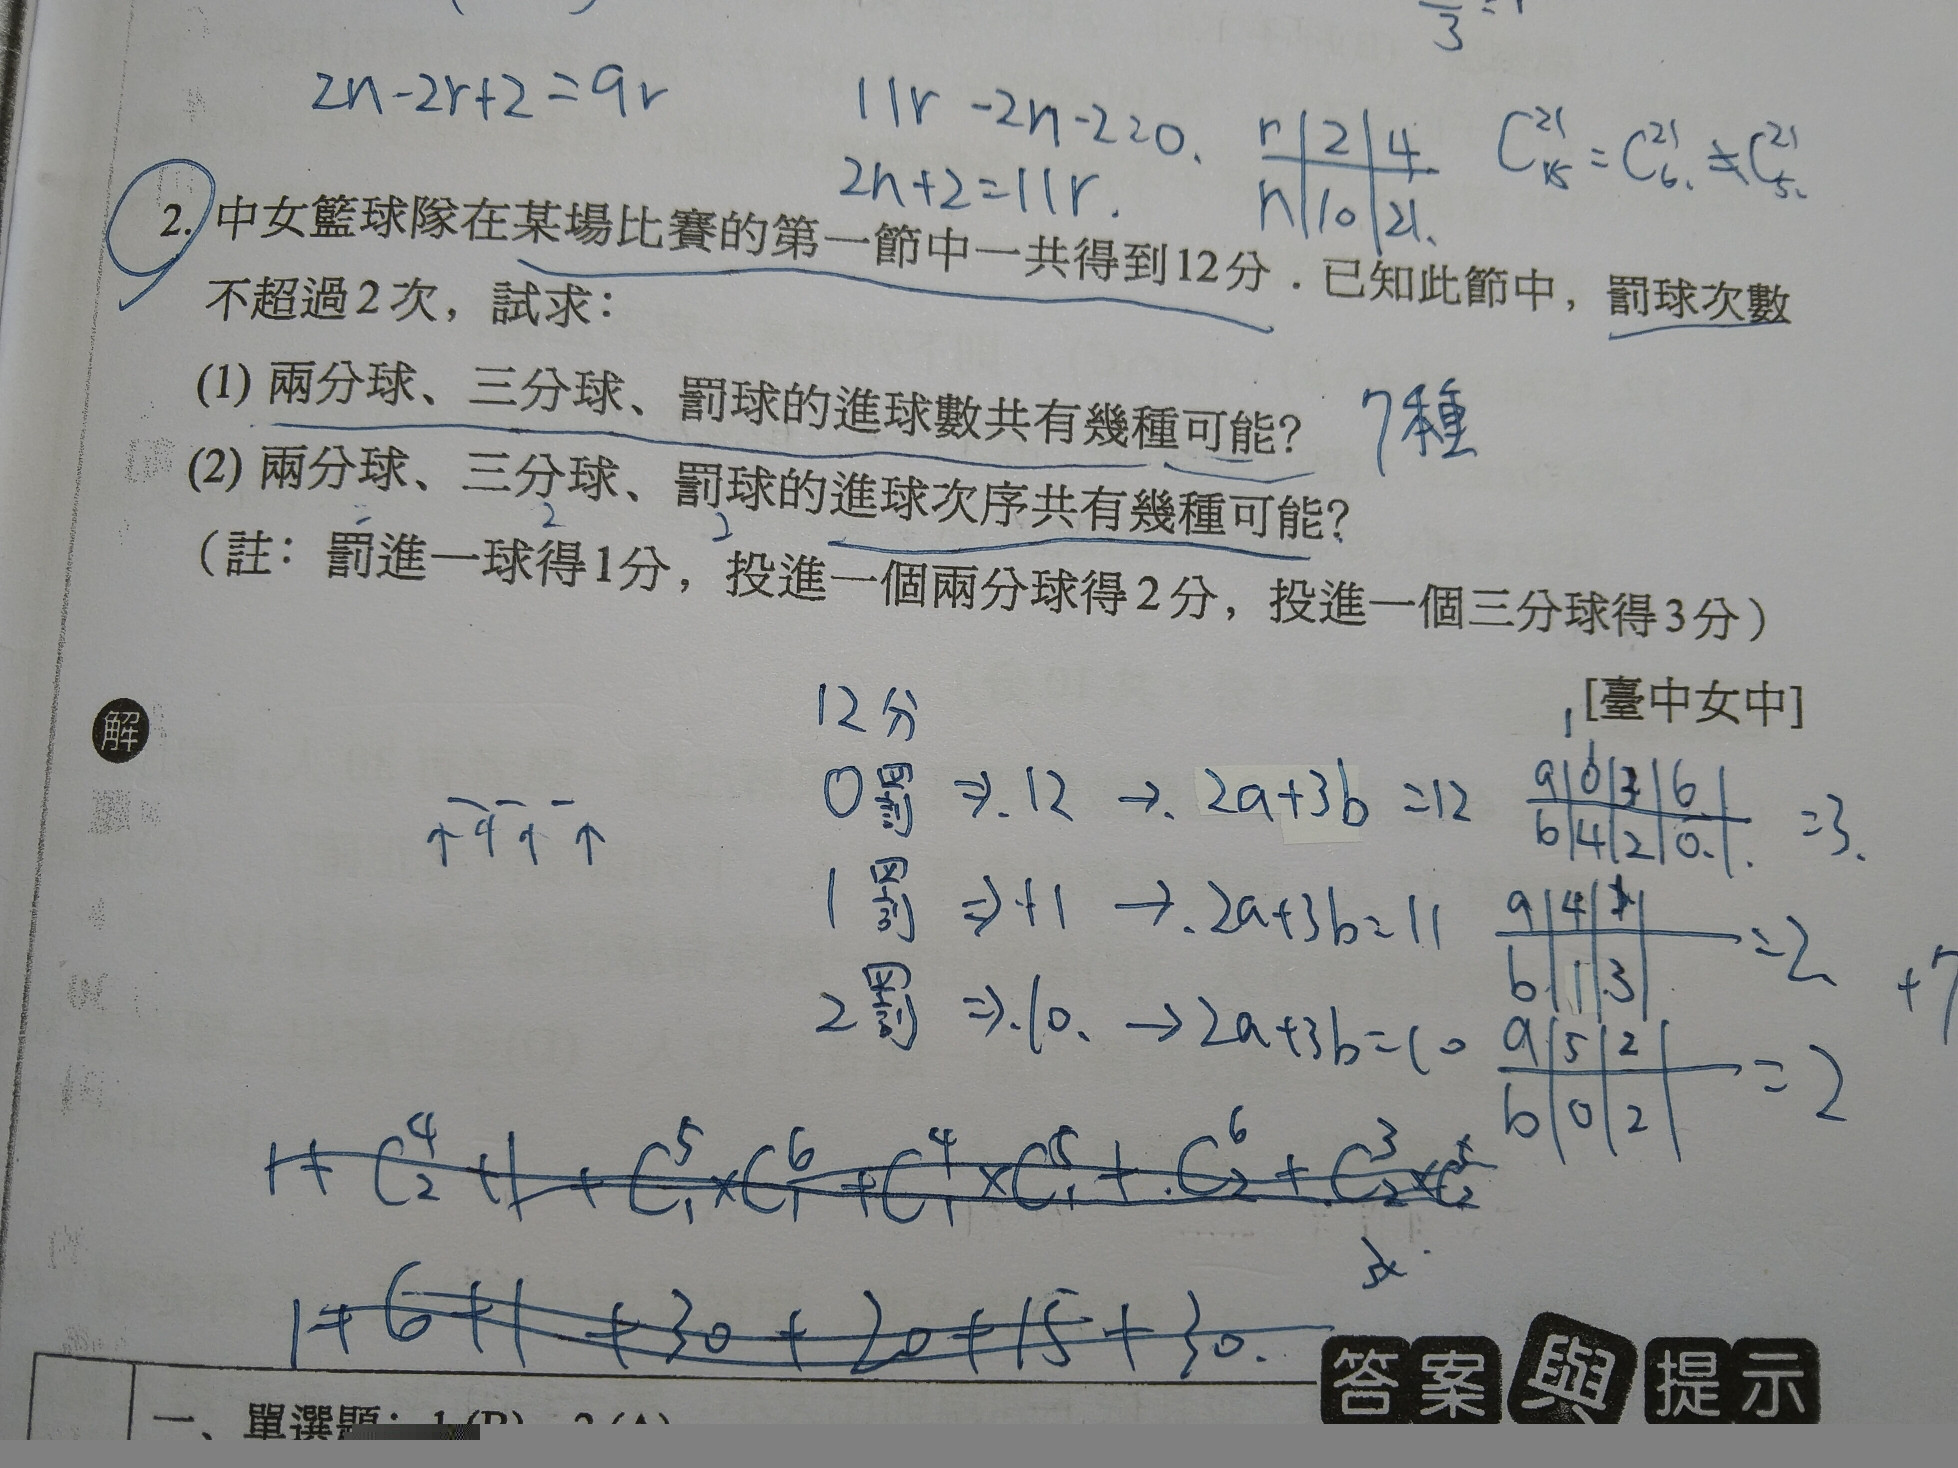 3
2n-2r+2=9r
11r-2n-2=0.
2n+2=11r.
r 2 4
n 10 21.
C²¹₁₅=C²¹₆.≠C²¹₅.
2. 中女籃球隊在某場比賽的第一節中一共得到12分．已知此節中，罰球次數
不超過2次，試求：
(1) 兩分球、三分球、罰球的進球數共有幾種可能？ 7種
(2) 兩分球、三分球、罰球的進球次序共有幾種可能？
2 2
（註：罰進一球得1分，投進一個兩分球得2分，投進一個三分球得3分）
[臺中女中]
解
12分
0罰 ⇒.12 →. 2a+3b=12
a 0 3 6
b 4 2 0.
=3.
1罰 ⇒11 →.2a+3b=11
a 4 1
b 1 3
=2
+7
2罰 ⇒.10. →2a+3b=10
a 5 2
b 0 2
=2
1+C⁴₂+1+C⁵₁×C⁶₁+C⁴₁×C⁵₁+C⁶₂+C³₂×C
1+6+1+30+20+15+30.
答案與提示
一、單選題：1.(B) 2.(A)